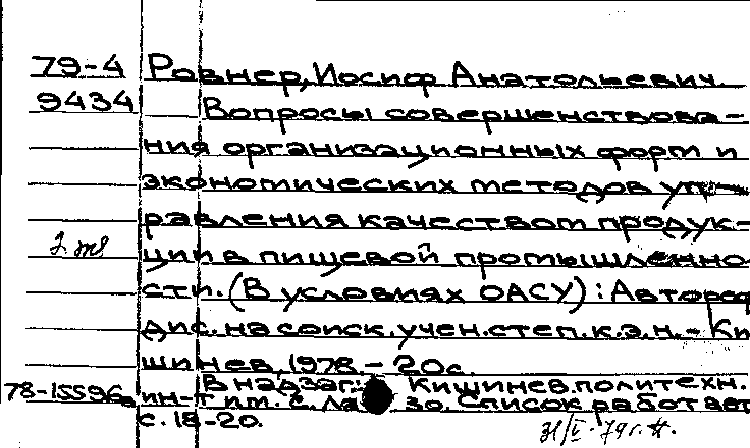 79-4 Ровнер, Иосиф Анатольевич.
9434 Вопросы совершенствова-
ния организационных форм и
экономических методов уп-
равления качеством продук-
ции в пищевой промышленно
сти. (В условиях ОАСУ): Автореф
дис. на соиск. учен. степ. к.э.н. - Ки
шинев, 1978. - 20с.
В надзаг.: Кишинев. политехн.
78-15596 ин-т им. С. Ла зо. Список работ авт
с. 18-20.
31/V-79г.